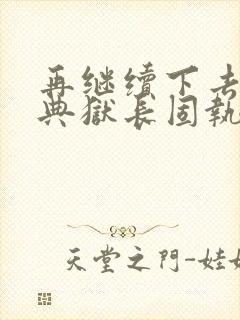 再继续下去
典獄长固執
天堂之門-娃娃